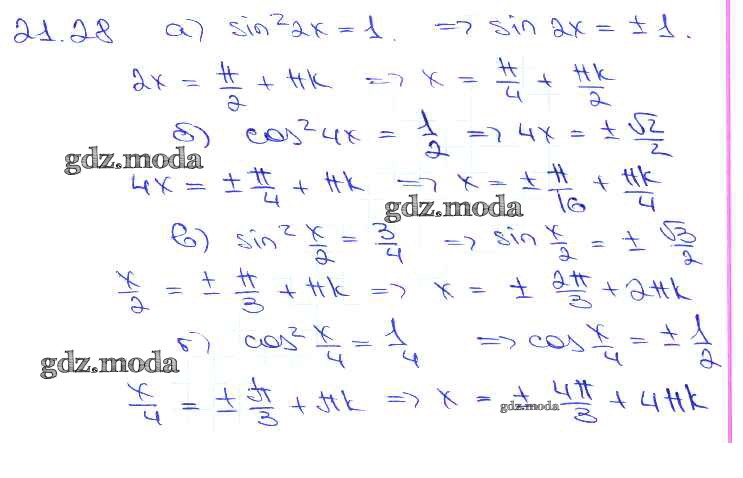 21.28 а) sin² 2x = 1. => sin 2x = ± 1.
2x = π/2 + πk => x = π/4 + πk/2
б) cos² 4x = 1/2 => 4x = ± √2/2
gdz.moda
4x = ± π/4 + πk => x = ± π/16 + πk/4
gdz.moda
в) sin² x/2 = 3/4 => sin x/2 = ± √3/2
x/2 = ± π/3 + πk => x = ± 2π/3 + 2πk
б) cos² x/4 = 1/4 => cos x/4 = ± 1/2
gdz.moda
x/4 = ± π/3 + πk => x = ± 4π/3 + 4πk
gdz.moda